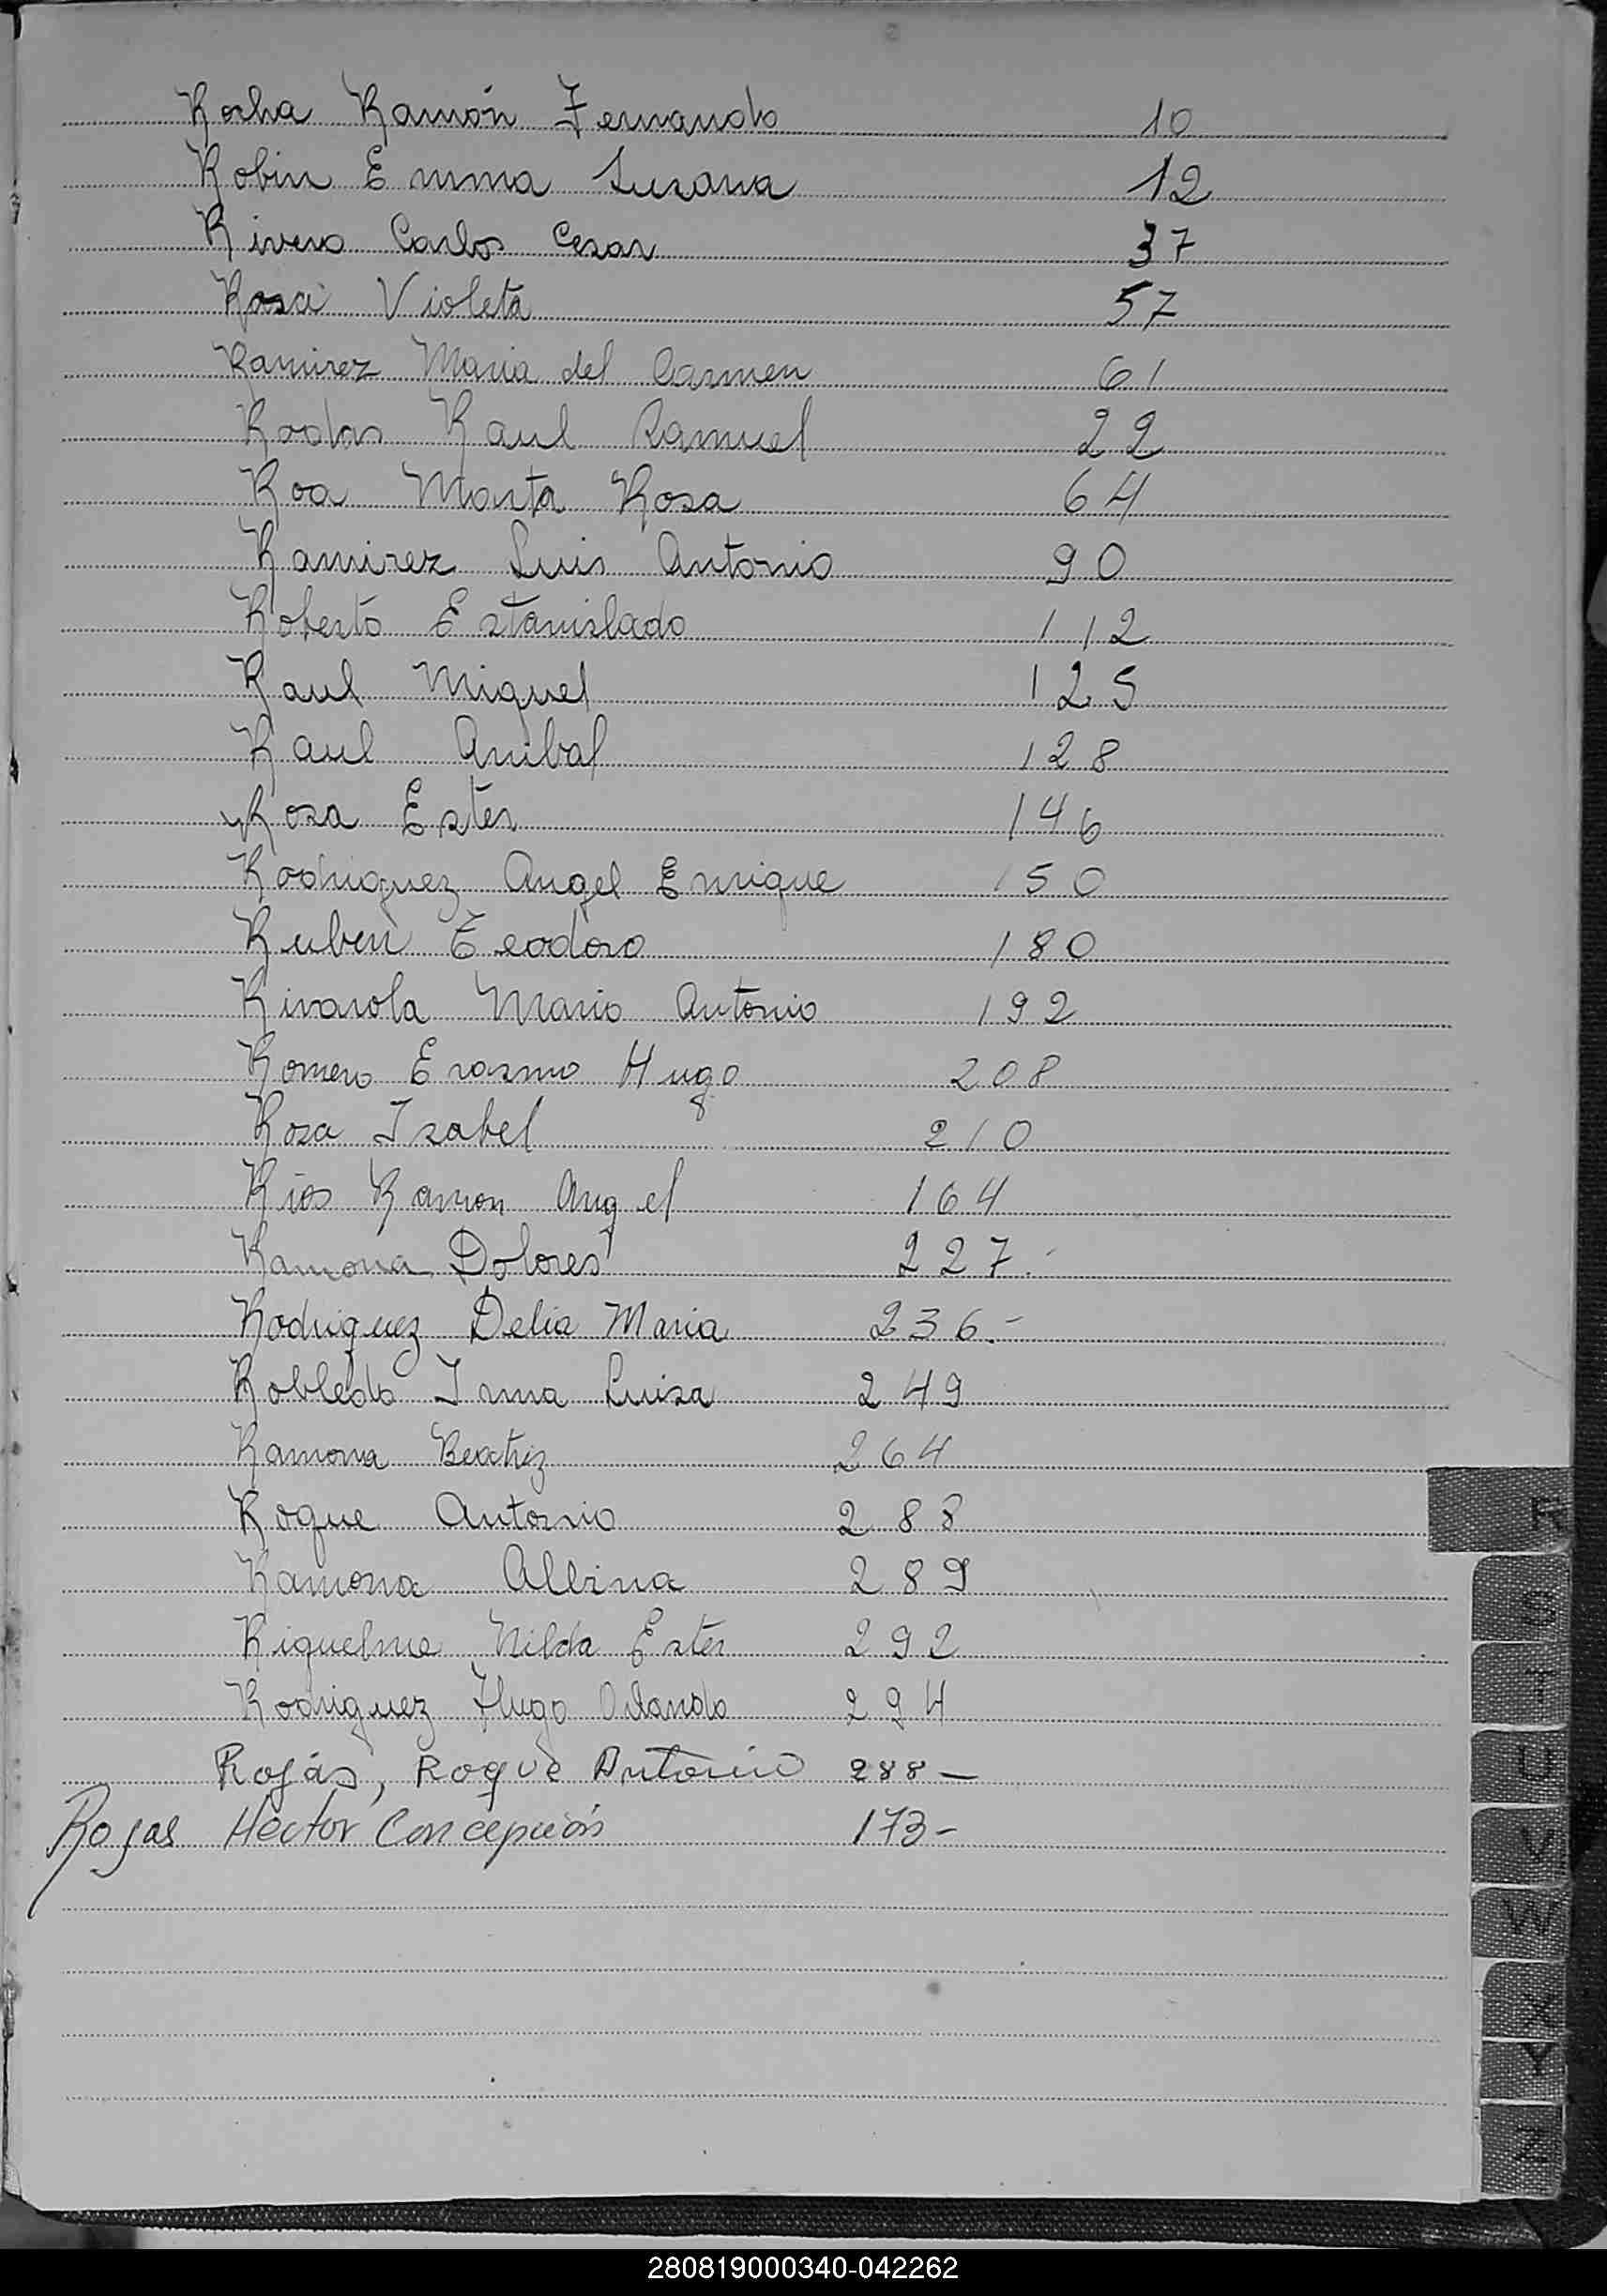 Rocha Ramón Fernando 10
Robin Emma Susana 12
Rivero Carlos Cesar 37
Rosa Violeta 57
Ramirez Maria del Carmen 61
Rodas Raul Samuel 22
Roa Marta Rosa 64
Ramirez Luis Antonio 90
Roberto Estanislado 112
Raul Miguel 125
Raul Anibal 128
Rosa Ester 146
Rodriguez Angel Enrique 150
Ruben Teodoro 180
Rivarola Mario Antonio 192
Romero Erasmo Hugo 208
Rosa Isabel 210
Rios Ramon Angel 164
Ramona Dolores 227.
Rodriguez Delia Maria 236.-
Robledo Irma Luisa 249
Ramona Beatriz 264
Roque Antonio 288
Ramona Albina 289
Riquelme Nilda Ester 292
Rodriguez Hugo Orlando 294
Rojás, Roque Antonio 288-
Rojas Héctor Concepción 173-
R
S
T
U
V
W
X
Y
Z
280819000340-042262